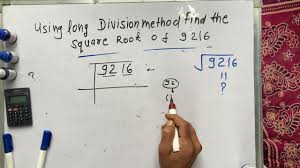 Using long Division method find the
Square Root of 9216
?
9216
√9216
92
11
?